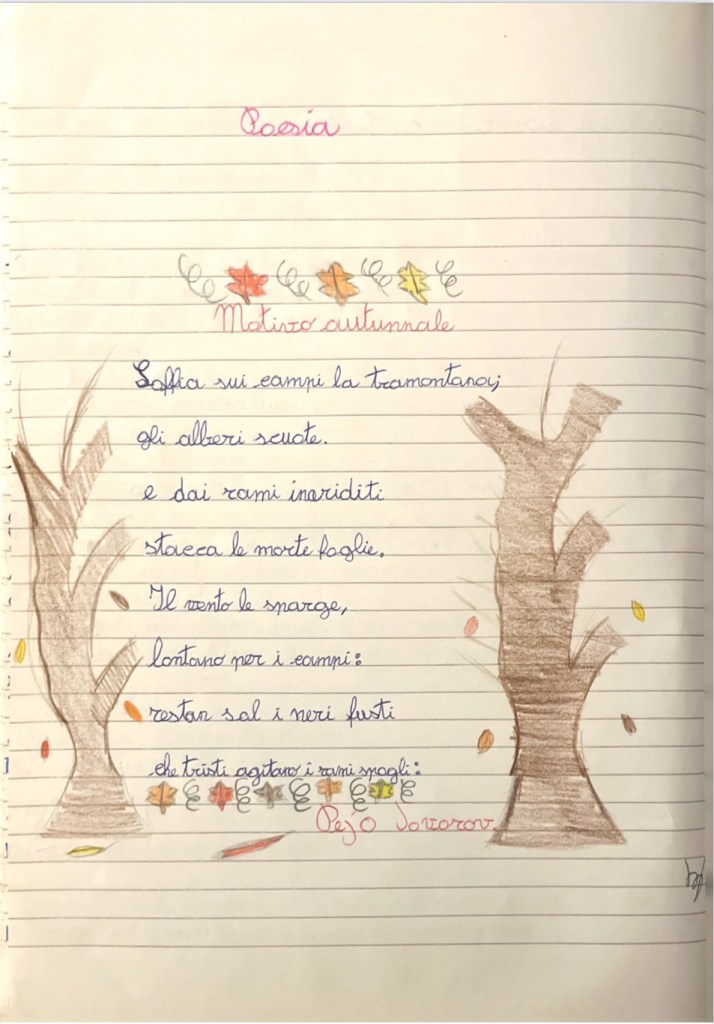 Poesia
Motivo autunnale
Soffia sui campi la tramontana;
gli alberi scuote.
e dai rami inariditi
stacca le morte foglie.
Il vento le sparge,
lontano per i campi:
restan sol i neri fusti
che tristi agitano i rami spogli:
Pejo Javorov.